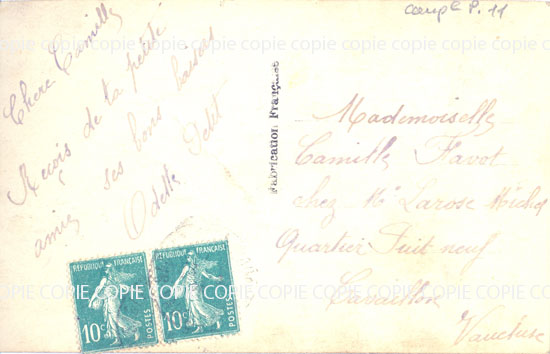 coupl P. 11
Chère Camille
Reçois de la petite
amie ses bons baisers
Odette Petit
Fabrication Française
Mademoiselle
Camille Favot
chez Mr Larose Michel
Quartier Puit neuf
Cavaillon
Vaucluse
REPUBLIQUE FRANÇAISE
10c
POSTES
REPUBLIQUE FRANÇAISE
10c
POSTES
COPIE COPIE COPIE COPIE COPIE COPIE COPIE COPIE
COPIE COPIE COPIE COPIE COPIE COPIE COPIE COPIE
COPIE COPIE COPIE COPIE COPIE COPIE COPIE COPIE